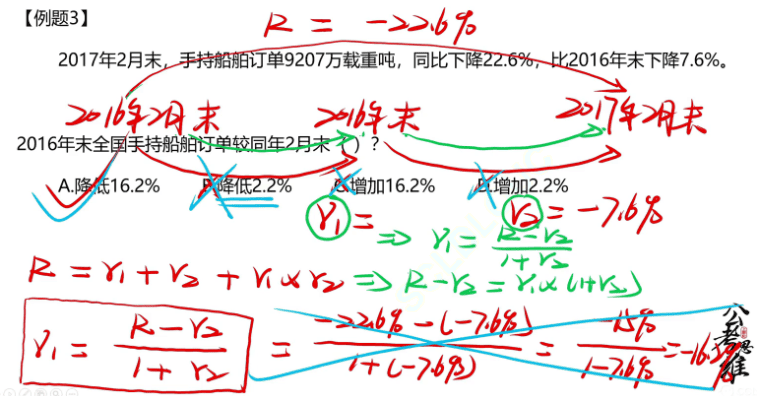 【例题3】
R = -22.6%
2017年2月末，手持船舶订单9207万载重吨，同比下降22.6%，比2016年末下降7.6%。
2016年2月末 2016年末 2017年2月末
2016年末全国手持船舶订单较同年2月末（ ）？
A.降低16.2% B.降低2.2% C.增加16.2% D.增加2.2%
r₁= r₂=-7.6%
=> r₁ = R-r₂ / 1+r₂
R = r₁+r₂+r₁×r₂ => R-r₂ = r₁×(1+r₂)
r₁ = R-r₂ / 1+r₂ = -22.6%-(-7.6%) / 1+(-7.6%) = -15% / 1-7.6% = -16.2%
公考思维